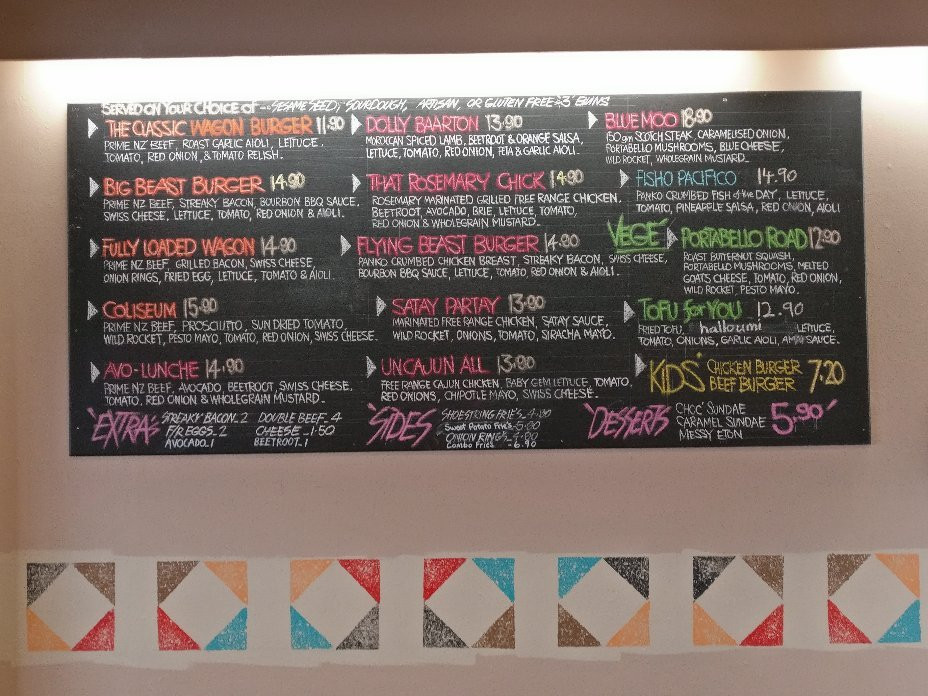 SERVED ON YOUR CHOICE OF... SESAME SEED, SOURDOUGH, ARTISAN, OR GLUTEN FREE +3 BUNS
THE CLASSIC WAGON BURGER 11.90
PRIME NZ BEEF, ROAST GARLIC AIOLI, LETTUCE.
TOMATO, RED ONION, & TOMATO RELISH.
BIG BEAST BURGER 14.90
PRIME NZ BEEF, STREAKY BACON, BOURBON BBQ SAUCE,
SWISS CHEESE, LETTUCE, TOMATO, RED ONION & AIOLI.
FULLY LOADED WAGON 14.90
PRIME NZ BEEF, GRILLED BACON, SWISS CHEESE,
ONION RINGS, FRIED EGG, LETTUCE, TOMATO & AIOLI.
COLISEUM 15.90
PRIME NZ BEEF, PROSCIUTTO, SUN DRIED TOMATO,
WILD ROCKET, PESTO MAYO, TOMATO, RED ONION, SWISS CHEESE.
AVO-LUNCHE 14.90
PRIME NZ BEEF, AVOCADO, BEETROOT, SWISS CHEESE,
TOMATO, RED ONION & WHOLEGRAIN MUSTARD.
DOLLY BAARTON 13.90
MOROCCAN SPICED LAMB, BEETROOT & ORANGE SALSA,
LETTUCE, TOMATO, RED ONION, FETA & GARLIC AIOLI.
THAT ROSEMARY CHICK 14.90
ROSEMARY MARINATED GRILLED FREE RANGE CHICKEN,
BEETROOT, AVOCADO, BRIE, LETTUCE, TOMATO,
RED ONION & WHOLEGRAIN MUSTARD.
FLYING BEAST BURGER 14.90
PANKO CRUMBED CHICKEN BREAST, STREAKY BACON, SWISS CHEESE,
BOURBON BBQ SAUCE, LETTUCE, TOMATO, RED ONION & AIOLI.
SATAY PARTAY 13.90
MARINATED FREE RANGE CHICKEN, SATAY SAUCE,
WILD ROCKET, ONIONS, TOMATO, SIRACHA MAYO.
UNCAJUN ALL 13.90
FREE RANGE CAJUN CHICKEN, BABY GEM LETTUCE, TOMATO,
RED ONIONS, CHIPOTLE MAYO, SWISS CHEESE.
BLUE MOO 18.90
150gm SCOTCH STEAK, CARAMELISED ONION,
PORTABELLO MUSHROOMS, BLUE CHEESE,
WILD ROCKET, WHOLEGRAIN MUSTARD.
FISHO PACIFICO 14.90
PANKO CRUMBED FISH of the DAY, LETTUCE,
TOMATO, PINEAPPLE SALSA, RED ONION, AIOLI
VEGE
PORTABELLO ROAD 12.90
ROAST BUTTERNUT SQUASH,
PORTABELLO MUSHROOMS, MELTED
GOATS CHEESE, TOMATO, RED ONION,
WILD ROCKET, PESTO MAYO.
TOFU for YOU 12.90
FRIED TOFU, halloumi LETTUCE,
TOMATO, ONIONS, GARLIC AIOLI, SAUCE.
KIDS' CHICKEN BURGER
BEEF BURGER 7.20
'EXTRAS STREAKY BACON_2 DOUBLE BEEF_4
F/R EGGS_2 CHEESE_1.50
AVOCADO_1 BEETROOT_1
'SIDES SHOESTRING FRIES_4.00
Sweet Potato Fries_5.00
ONION RINGS_4.00
Combo Fries _6.90
'DESSERTS CHOC' SUNDAE
CARAMEL SUNDAE
MESSY ETON
5.90'